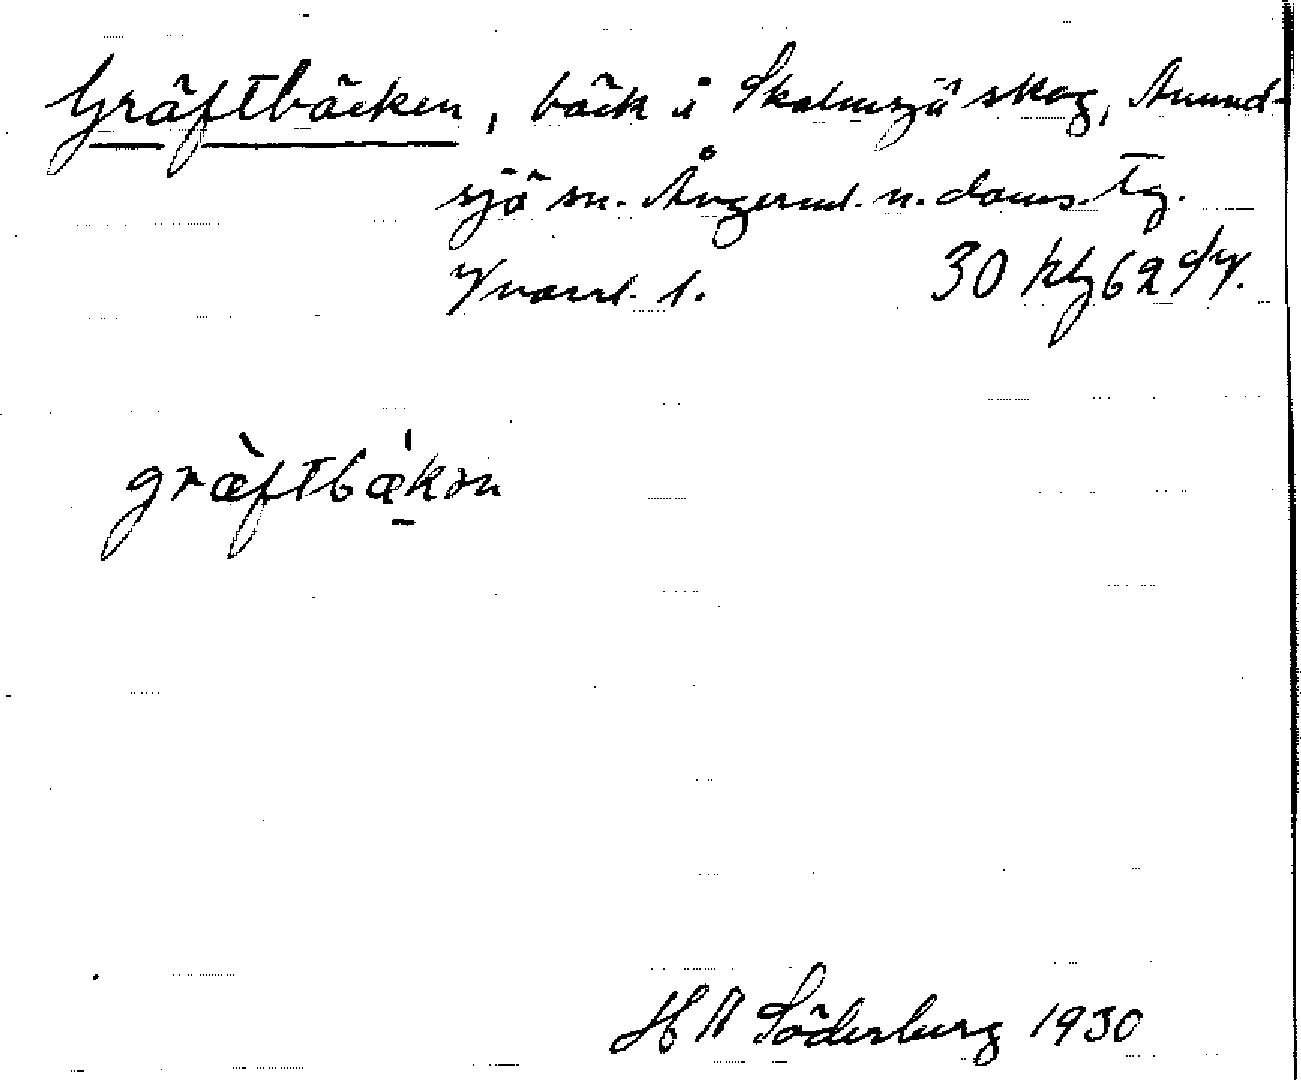 Gräftbäcken, bäck i Skalmsjö skog, Anund-
sjö sn. Ångerml. n. doms. Tg.
Y 30 kbl 62 d/y.
græ̀ftbæ̀kən
H A Söderberg 1930